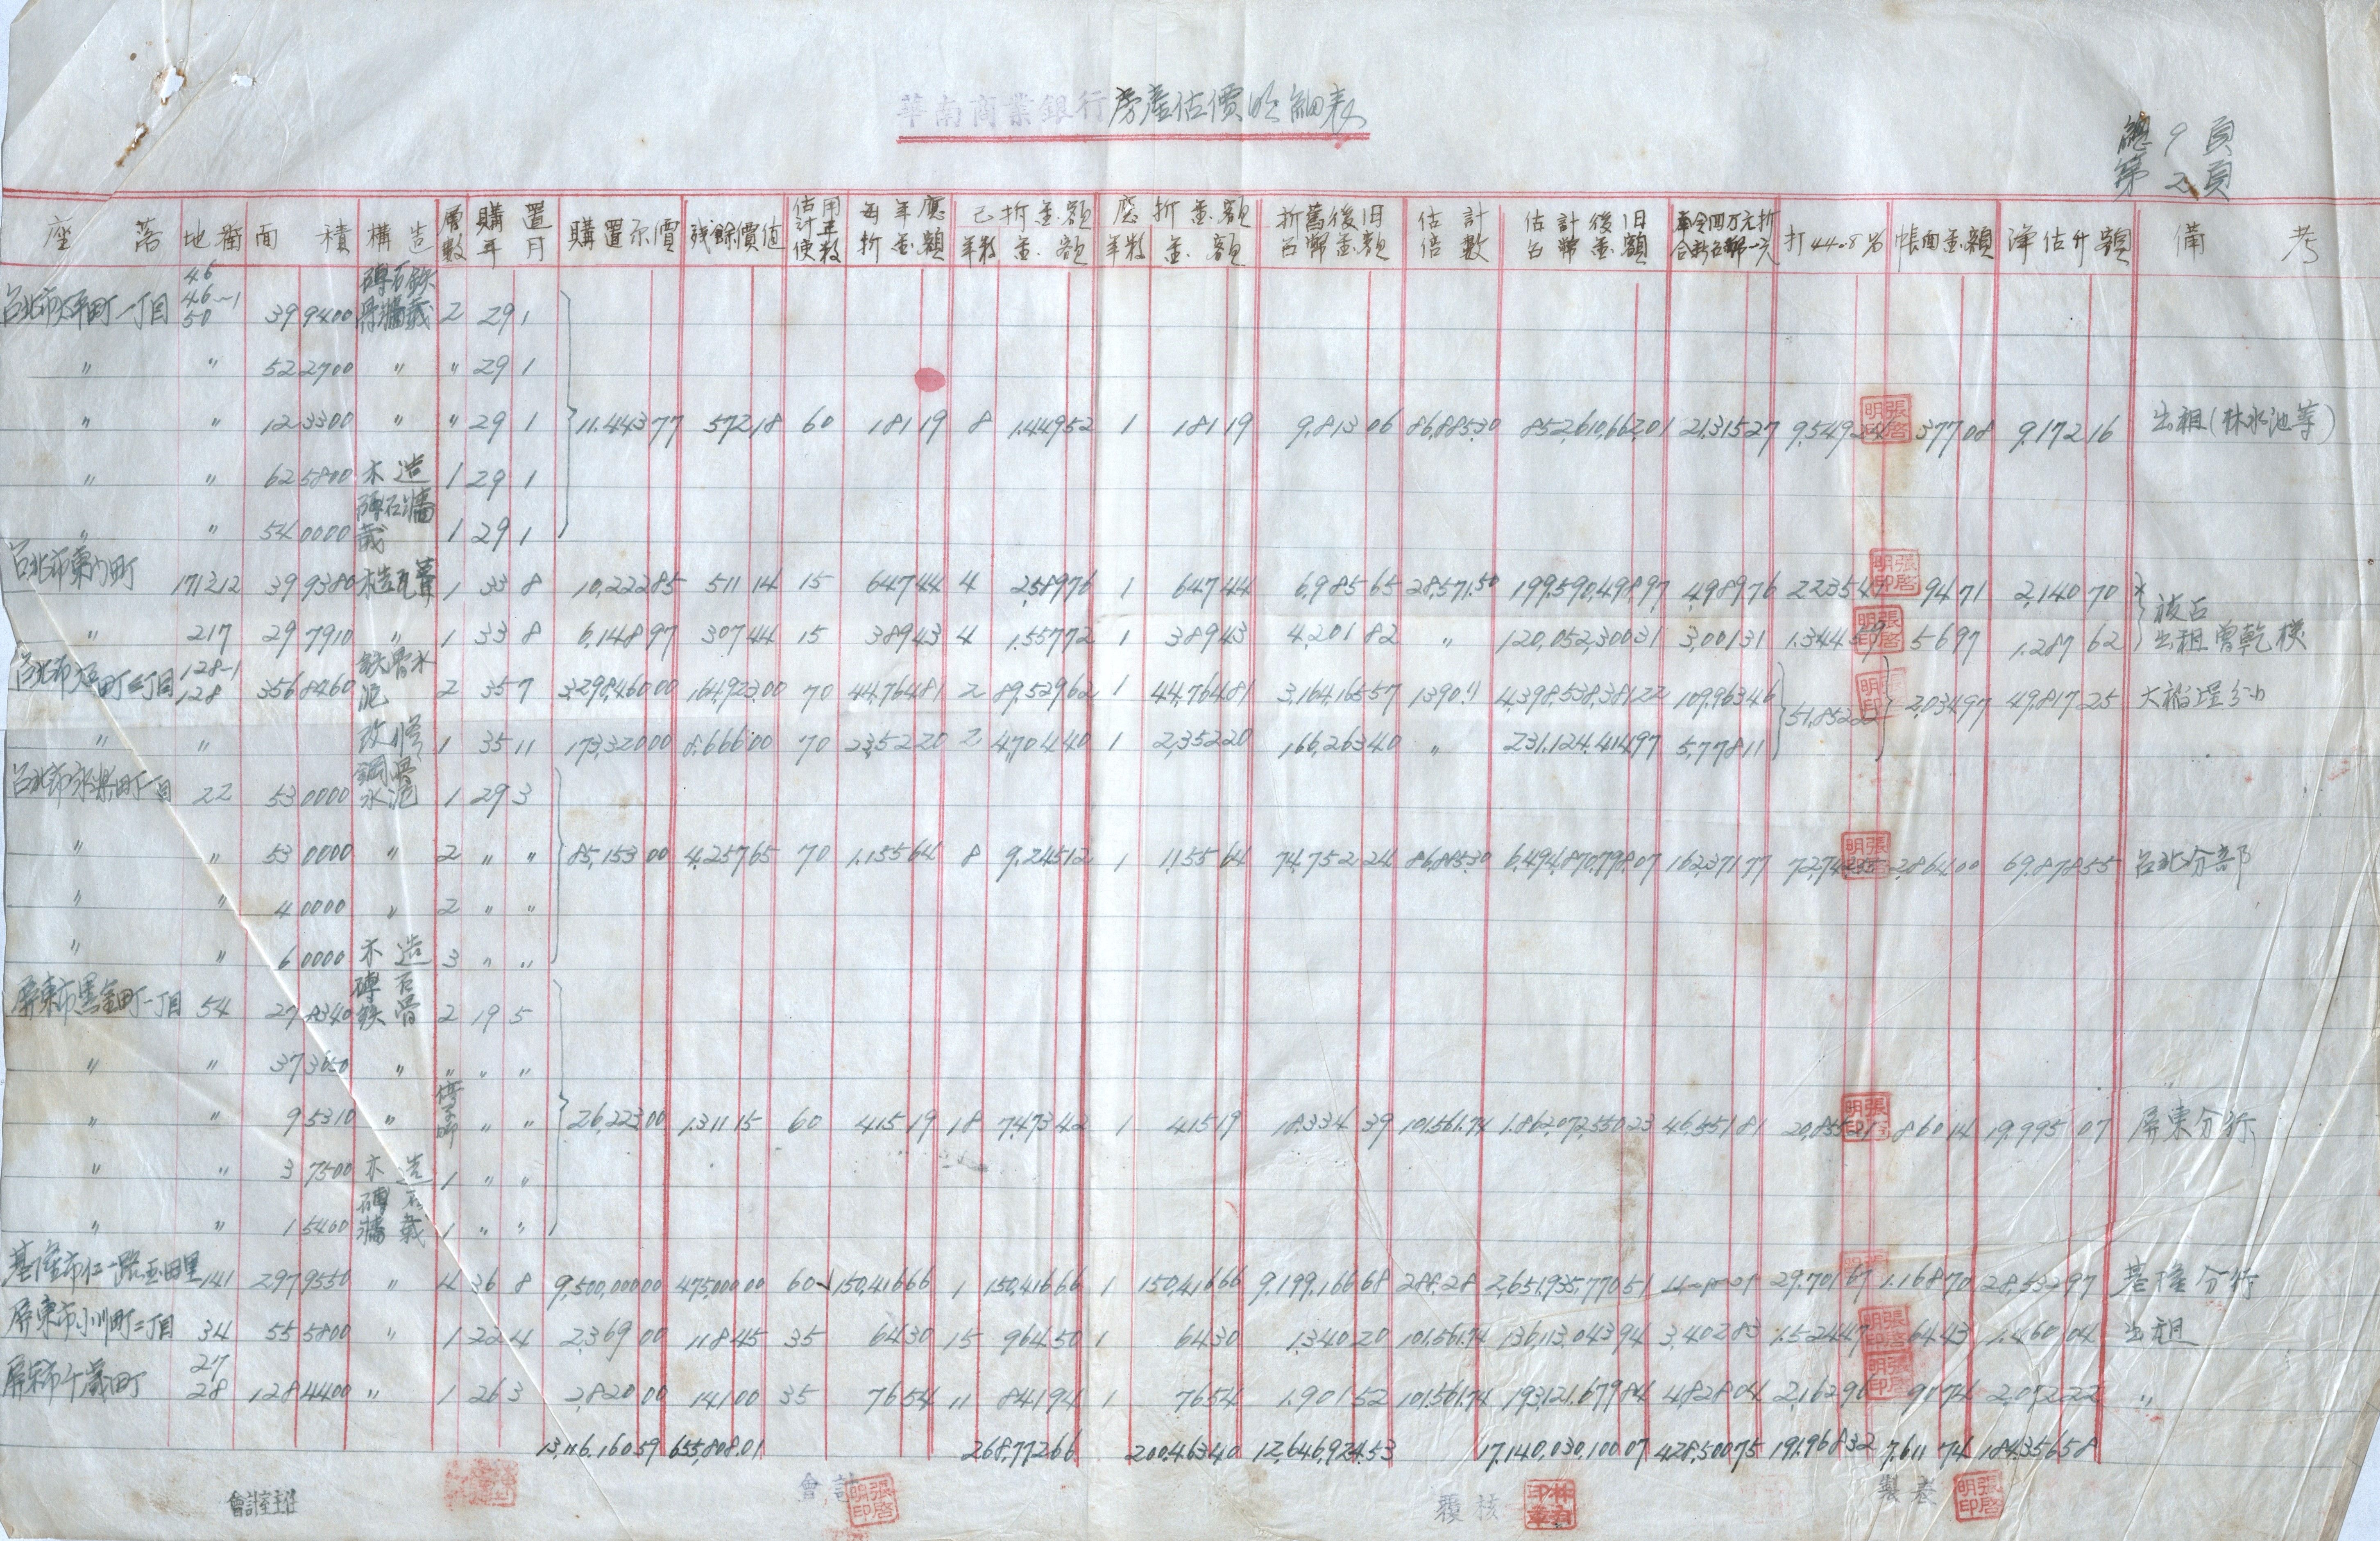 華南商業銀行房產估價明細表
總 9 頁
第 2 頁
座落 地番 面積 構造 層數 購置年月 購置原價 殘餘價值 估計使用年數 每年應折金額 已折金額 年數 金額 應折金額 年數 金額 折舊後旧台幣金額 估計倍數 估計後旧台幣金額 打44.8% 帳面金額 淨估升額 備考
台北市太平町一丁目 46 46-1 50 39 9400 2 29 1
〃 〃 52 2700 〃 〃 29 1
〃 〃 12 3300 〃 〃 29 1 11,443 77 572 18 60 181 19 8 1,449 52 1 181 19 9,813 06 86,885.30 852,610,662.01 21,315 27 9,549 24 377 08 9,172 16 出租(林水池等)
〃 〃 62 5800 木造 1 29 1
〃 〃 54 0000 1 29 1
台北市東門町 171 212 39 9380 1 33 8 10,222 85 511 14 15 647 44 4 2,589 76 1 647 44 6,985 65 28,571.50 199,590,498.97 4,989 76 2,235 41 94 71 2,140 70
〃 217 29 7910 〃 1 33 8 6,148 97 307 44 15 389 43 4 1,557 72 1 389 43 4,201 82 〃 120,052,300 31 3,001 31 1,344 59 56 97 1,287 62 出租曾乾模
128-1 128 356 8460 鉄骨水泥 2 35 7 3,298,460 00 164,923 00 70 44,764 81 2 89,529 62 1 44,764 81 3,164,165 57 1390.11 4,398,538,381 22 109,963 46 51,852 22 2,034 97 49,817 25
〃 〃 改修 1 35 11 173,320 00 8,666 00 70 2,352 20 2 4,704 40 1 2,352 20 166,263 40 〃 231,124,414 97 5,778 11
台北市永樂町一丁目 22 53 0000 鋼骨水泥 1 29 3
〃 〃 53 0000 〃 2 〃 〃 85,153 00 4,257 65 70 1,155 64 8 9,245 12 1 1,155 64 74,752 24 86,885.30 6,494,870,798.07 162,371 77 2,864 00 69,878 55 台北分部
〃 〃 4 0000 〃 2 〃 〃
〃 〃 6 0000 木造 3 〃 〃
屏東市黑金町一丁目 54 27 8340 磚石鉄骨 2 19 5
〃 〃 37 3050 〃 〃 〃 〃
〃 〃 9 5310 〃 〃 〃 26,223 00 1,311 15 60 415 19 18 7,473 42 1 415 19 18,334 39 101,561.74 1,862,072,550 23 46,551 81 20,855 21 860 14 19,995 07 屏東分行
〃 〃 3 7500 木造 1 〃 〃
〃 〃 1 5400 1 〃 〃
141 297 9550 〃 4 36 8 9,500,000 00 475,000 00 60 150,416 66 1 150,416 66 1 150,416 66 9,199,166 68 288.28 2,651,935,770 51 29,701 67 1,168 70 28,532 97 基隆分行
屏東市小川町二丁目 34 55 5800 〃 1 22 4 2,369 00 118 45 35 64 30 15 964 50 1 64 30 1,340 20 101,561.74 136,113,043 94 3,402 83 1,524 47 64 43 1,460 04 出租
屏東市千歲町 27 28 128 4400 〃 1 26 3 2,820 00 141 00 35 76 54 11 841 94 1 76 54 1,901 52 101,561.74 193,121,679 84 4,828 04 2,162 96 90 74 2,072 22 〃
13,116,160 59 655,808.01 268,772 66 200,463 40 12,646,924.53 17,140,030,100 07 428,500 75 191,968 32 7,611 74 184,356 58
會計室主任 會計 張啓明印 覆核 製表 張啓明印